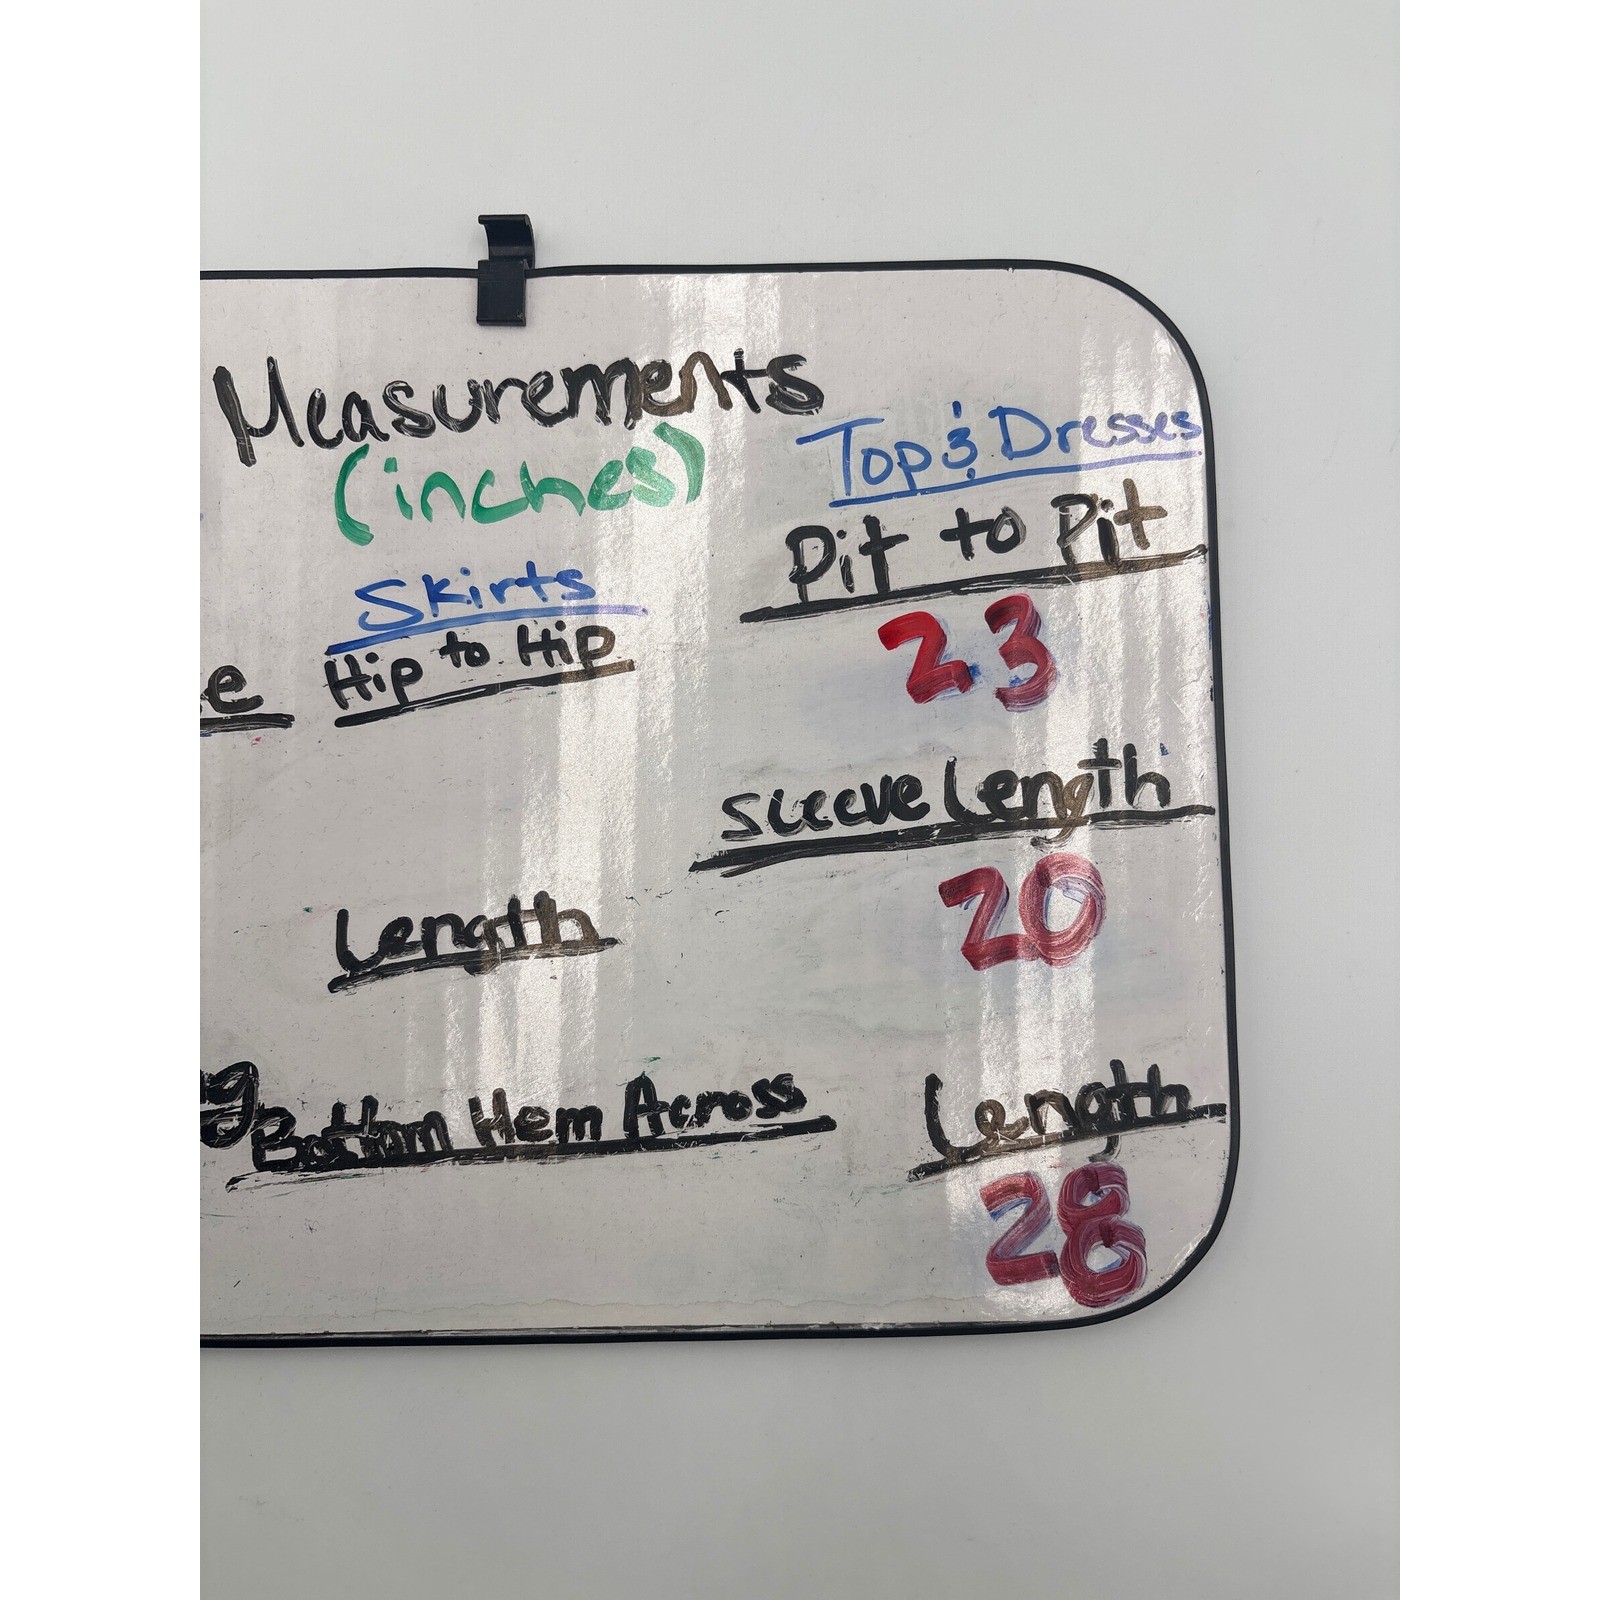 Measurements
(inches)
Skirts
Hip to Hip
Length
Bottom Hem Across
Top & Dresses
Pit to Pit
23
Sleeve Length
20
Length
28